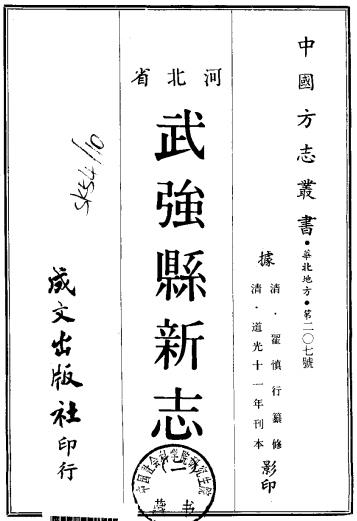 中國方志叢書·華北地方·第二〇七號
據清·翟慎行纂修
清·道光十一年刊本影印
河北省
武強縣新志
(一)
成文出版社印行
SK54/10